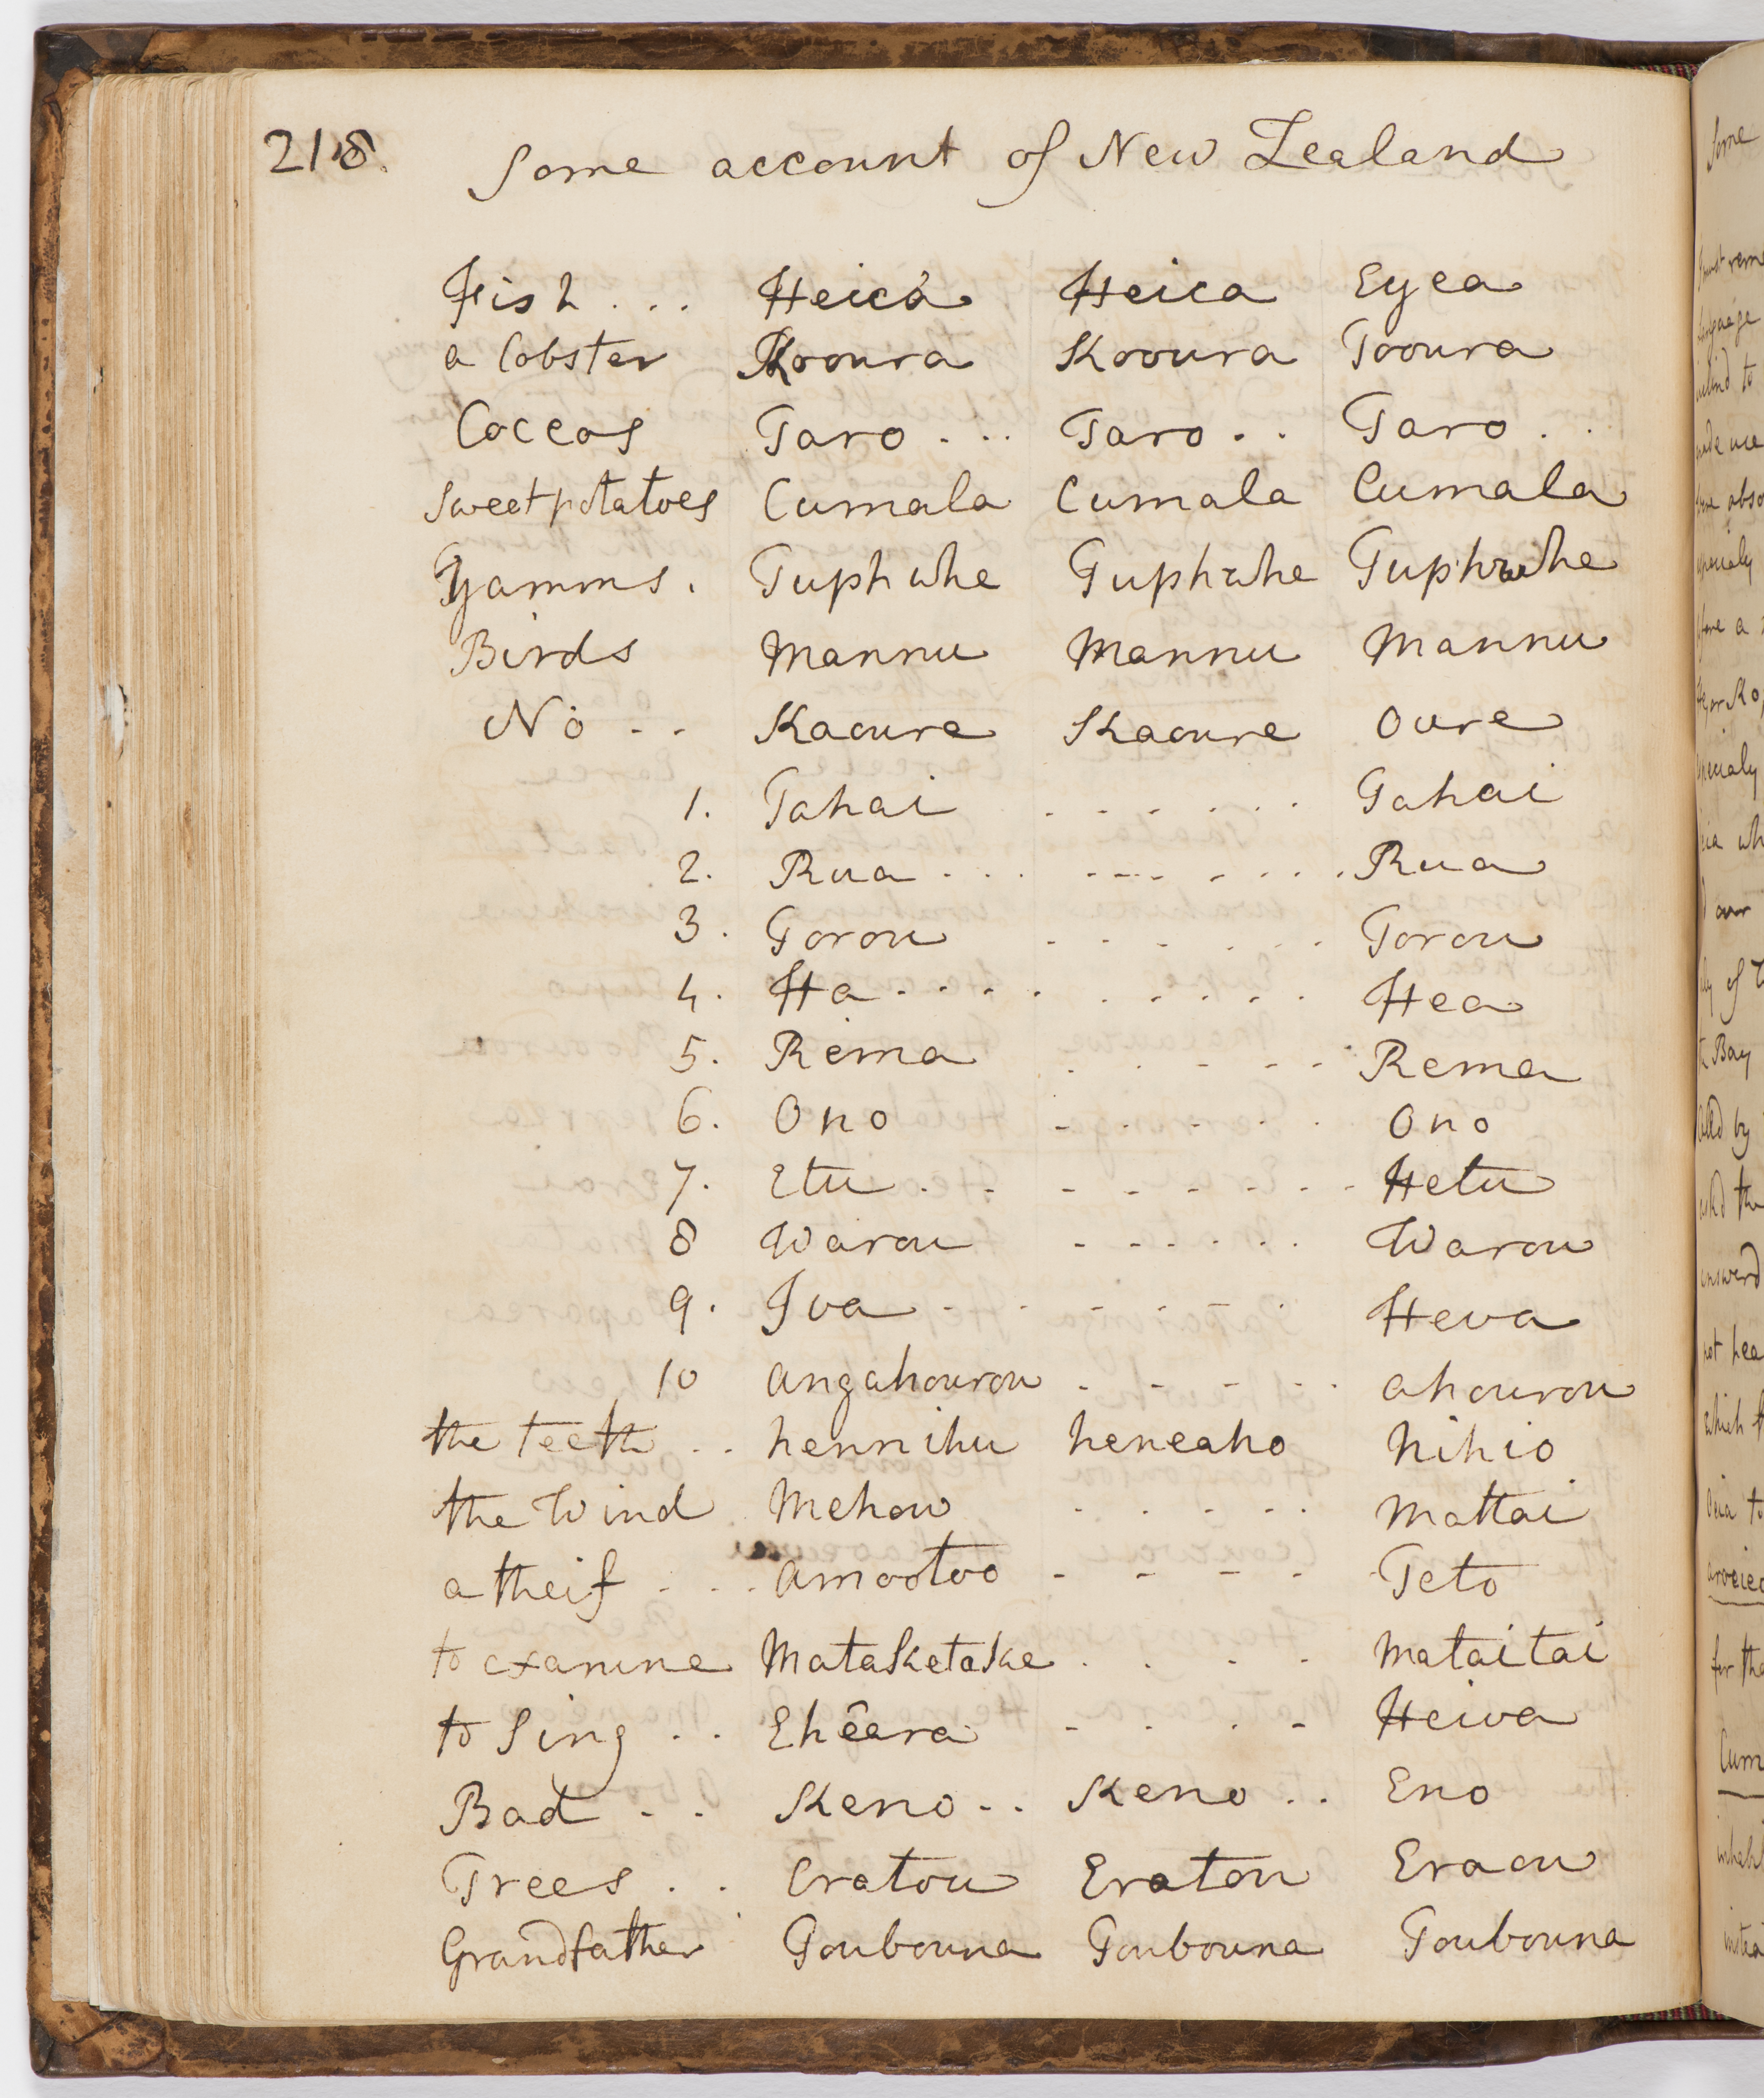 218. Some account of New Zealand
Fish . . . Heica Heica Eyea
a lobster Kooura Kooura Tooura
Coccos Taro . . . Taro . . Taro . .
Sweet potatoes Cumala Cumala Cumala
Yamms . Tuphwhe Tuphwhe Tuphwhe
Birds Mannu Mannu Mannu
No . . Kaoure Kaoure Oure
1. Tahai . . . . . . Tahai
2. Rua . . . . . . . . . . Rua
3. Torou . . . . . . Torou
4. Ha . . . . . . . . . Hea
5. Rema . . . . . Rema
6. Ono . . . . . Ono
7. Etu . . . . . . . . Hetu
8 Warou . . . . . . Warou
9. Iva . . . . . . Heva
10 angahourou . . . . . ahourou
the teeth . . hennihu heneaho Nihio
the Wind Mehow . . . . . Mattai
a theif . . . Amootoo . . . . . Teto
to examine Mataketake . . . . Mataitai
to Sing . . Eheara . . . . Heiva
Bad . . Keno . . Keno . . Eno
Trees . . Eratou Eratou Eraou
Grandfather Toubouna Toubouna Toubouna